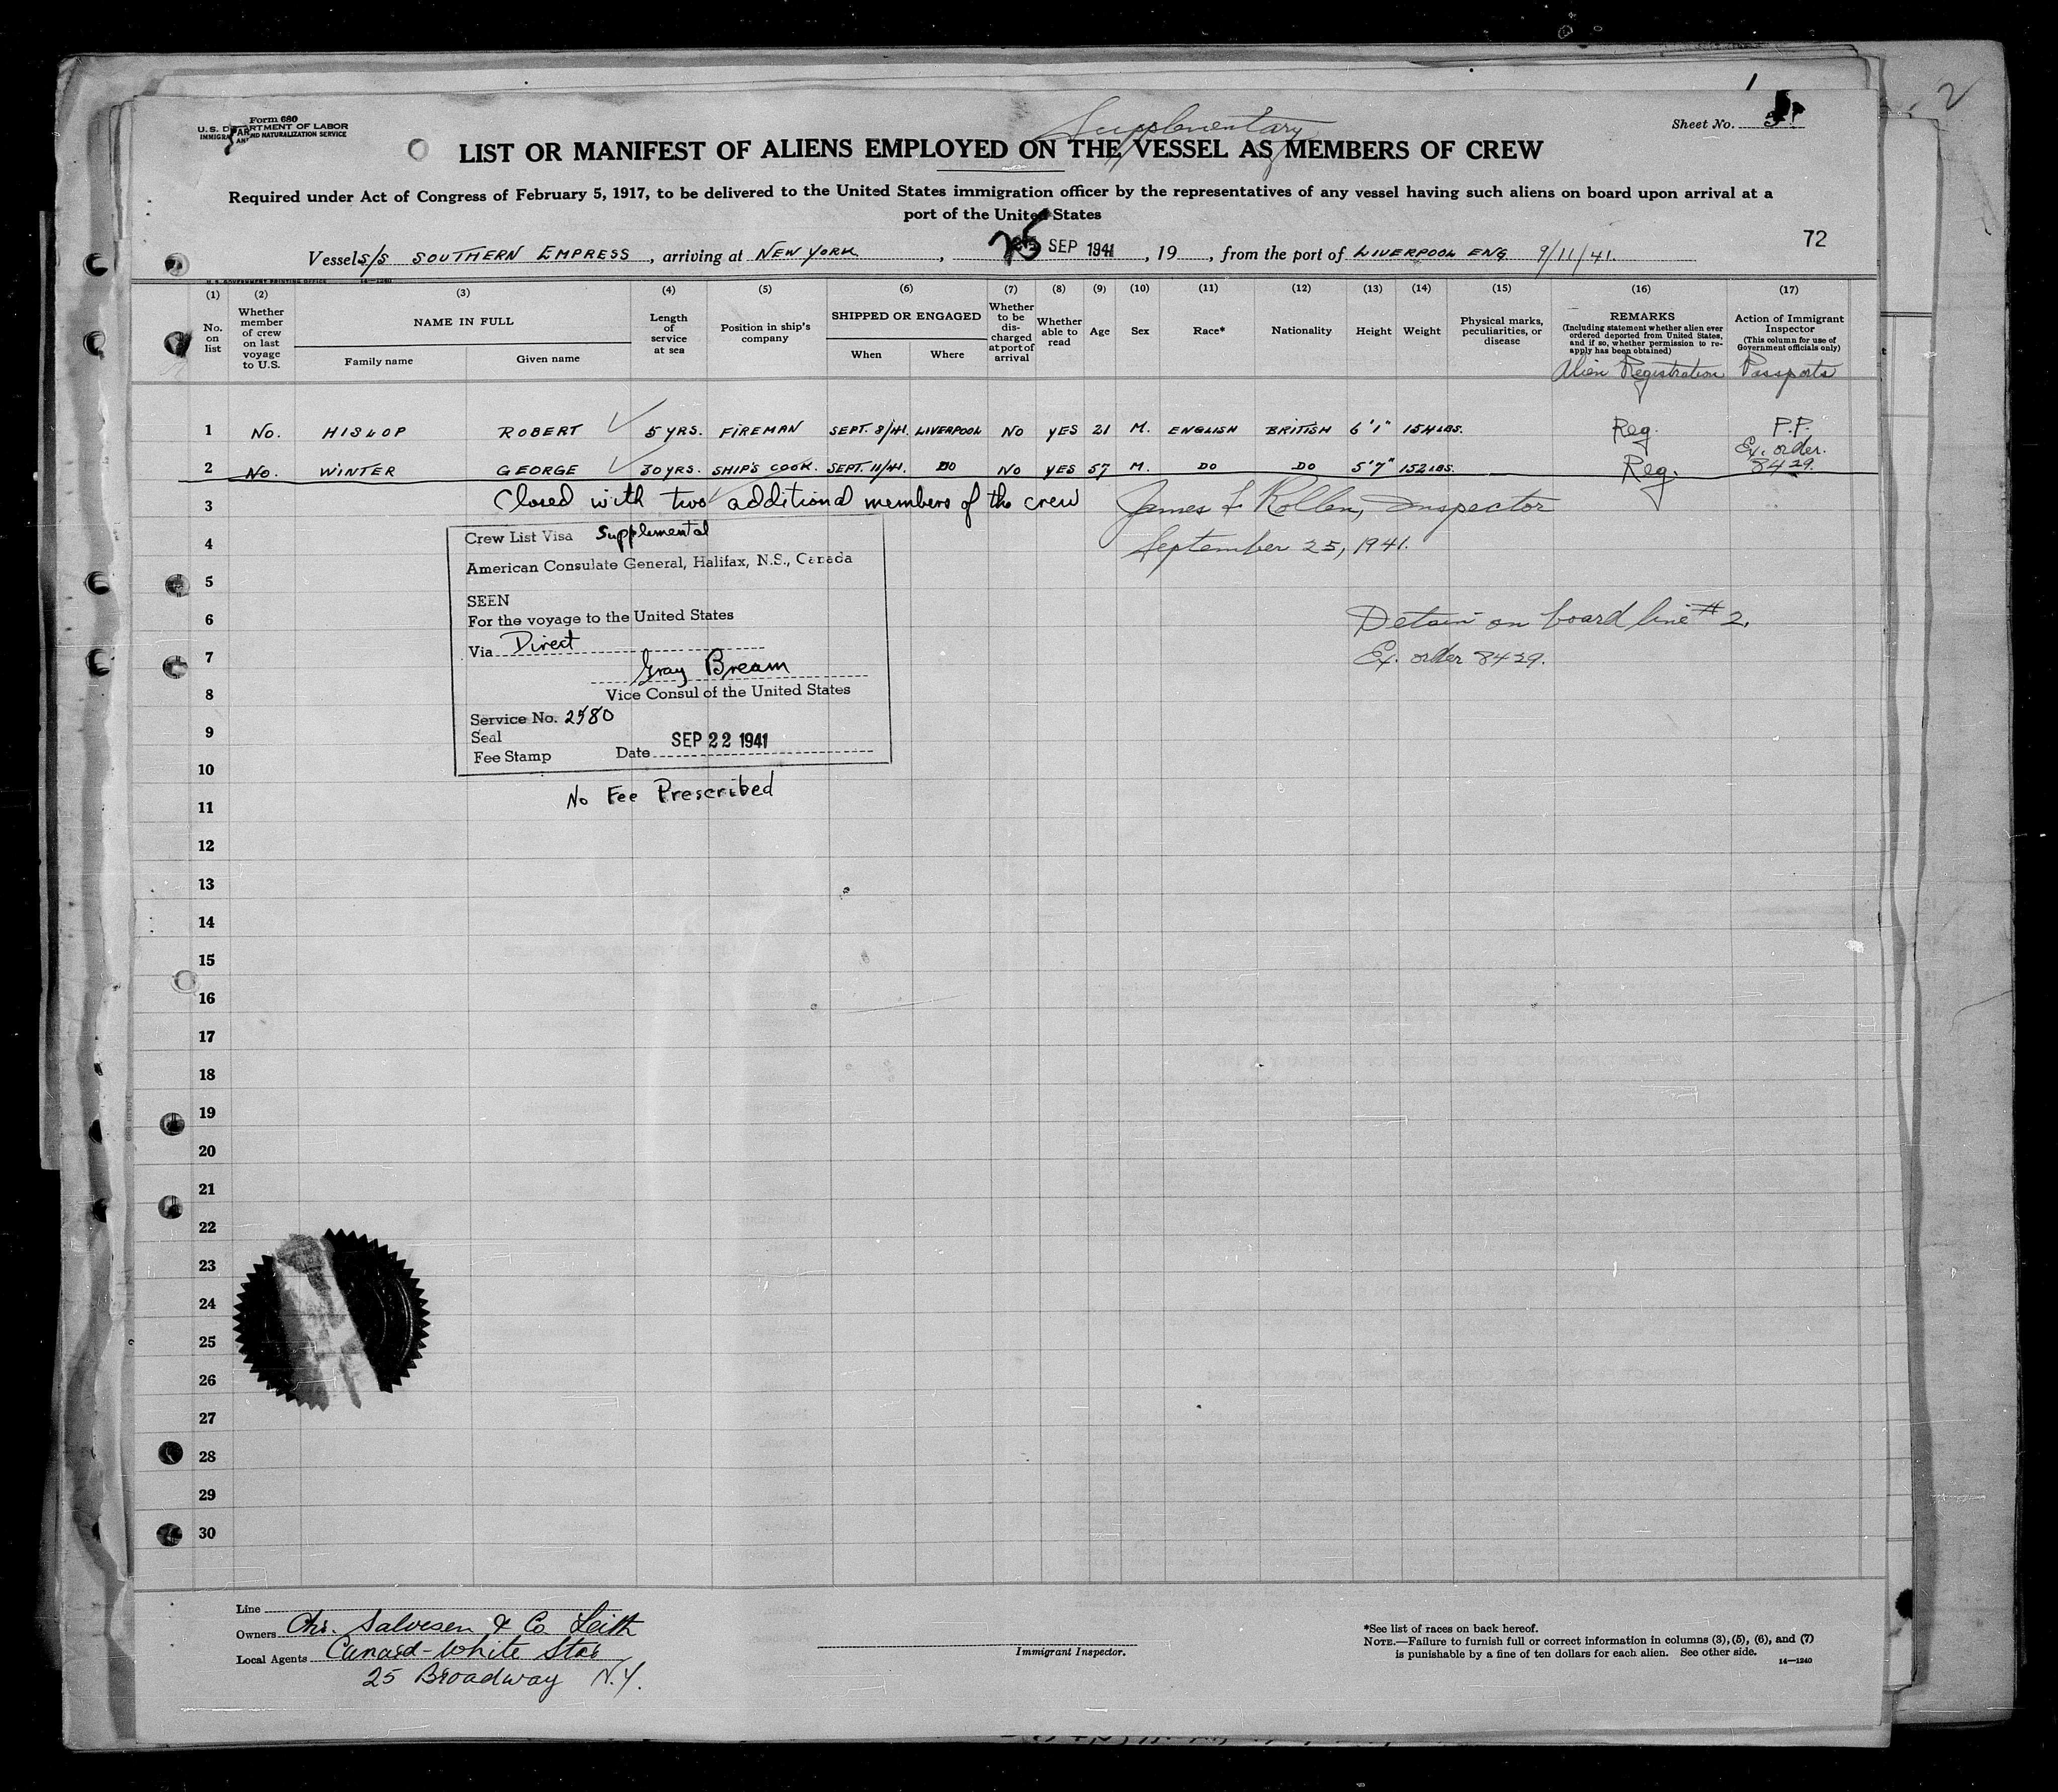 1
2
Form 680
U.S. DEPARTMENT OF LABOR
IMMIGRATION AND NATURALIZATION SERVICE
Sheet No.
Supplementary
LIST OR MANIFEST OF ALIENS EMPLOYED ON THE VESSEL AS MEMBERS OF CREW
Required under Act of Congress of February 5, 1917, to be delivered to the United States immigration officer by the representatives of any vessel having such aliens on board upon arrival at a
port of the United States
72
Vessel S/S SOUTHERN EMPRESS, arriving at NEW YORK, 25 SEP 1941, 19, from the port of LIVERPOOL ENG 9/11/41.
U. S. GOVERNMENT PRINTING OFFICE 14—1240
(1) (2) (3) (4) (5) (6) (7) (8) (9) (10) (11) (12) (13) (14) (15) (16) (17)
No. on list
Whether member of crew on last voyage to U.S.
NAME IN FULL
Family name
Given name
Length of service at sea
Position in ship's company
SHIPPED OR ENGAGED
When
Where
Whether to be discharged at port of arrival
Whether able to read
Age
Sex
Race*
Nationality
Height
Weight
Physical marks, peculiarities, or disease
REMARKS
(Including statement whether alien ever ordered deported from United States, and if so, whether permission to re-apply has been obtained)
Alien Registration
Action of Immigrant Inspector
(This column for use of Government officials only)
Passports
1 No. HISLOP ROBERT 5 YRS. FIREMAN SEPT. 8/41. LIVERPOOL NO YES 21 M. ENGLISH BRITISH 6'1" 154 LBS. Reg. P.P.
2 No. WINTER GEORGE 30 YRS. SHIP'S COOK. SEPT. 11/41. DO NO YES 57 M. DO DO 5'7" 152 LBS. Reg. Ex. order. 8429.
3 Closed with two additional members of the crew James F. Rollen, Inspector
September 25, 1941.
Crew List Visa Supplemental
4
American Consulate General, Halifax, N.S., Canada
5
SEEN
6 For the voyage to the United States
Detain on board line #2.
Ex. order 8429.
7 Via Direct
Gray Bream
8 Vice Consul of the United States
Service No. 2580
9 Seal
Fee Stamp Date SEP 22 1941
10
No Fee Prescribed
11
12
13
14
15
16
17
18
19
20
21
22
23
24
25
26
27
28
29
30
Line
Owners Chr. Salvesen & Co. Leith
Local Agents Cunard-White Star
25 Broadway N.Y.
Immigrant Inspector.
*See list of races on back hereof.
NOTE.—Failure to furnish full or correct information in columns (3), (5), (6), and (7)
is punishable by a fine of ten dollars for each alien. See other side.
14—1240